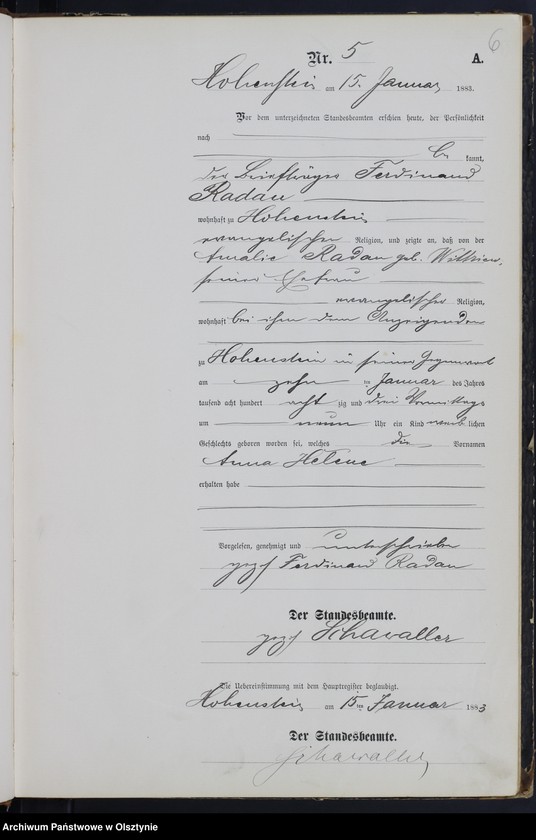 6
Nr. 5 A.
Hohenstein am 15. Januar 1883.
Vor dem unterzeichneten Standesbeamten erschien heute, der Persönlichkeit
nach
be kannt,
der Briefträger Ferdinand
Radau
wohnhaft zu Hohenstein
evangelischer Religion, und zeigte an, daß von der
Amalie Radau geb.
seiner Ehefrau
evangelischer Religion,
wohnhaft bei ihm dem Anzeigenden
zu Hohenstein in seiner Gegenwart
am zehn ten Januar des Jahres
tausend acht hundert acht zig und drei Vormittags
um neun Uhr ein Kind weib lichen
Geschlechts geboren worden sei, welches die Vornamen
Anna Helene
erhalten habe
Vorgelesen, genehmigt und unterschrieben
gez. Ferdinand Radau
Der Standesbeamte.
gez. Schavaller
Die Uebereinstimmung mit dem Hauptregister beglaubigt.
Hohenstein am 15ten Januar 1883
Der Standesbeamte.
Schavaller
Archiwum Państwowe w Olsztynie